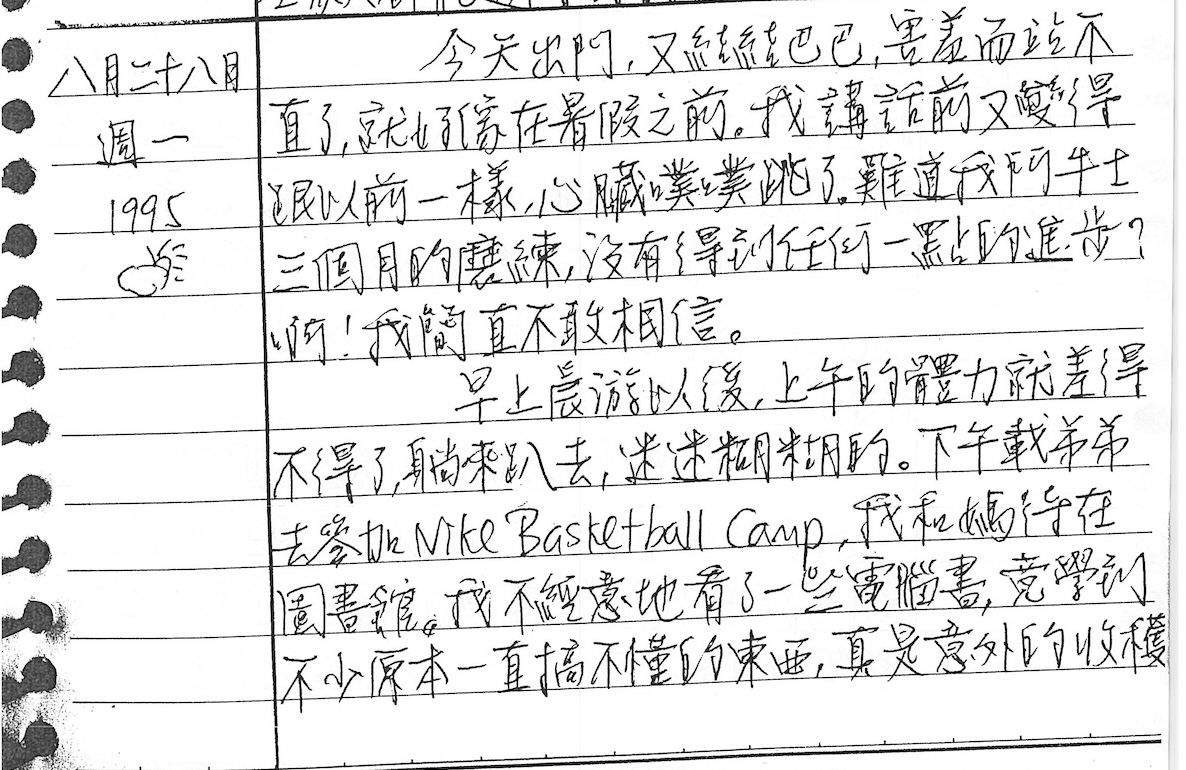 八月二十八日
週一
1995
今天出門，又結結巴巴，害羞而站不
直了，就好像在暑假之前。我講話前又變得
跟以前一樣，心臟噗噗跳了。難道我鬥牛士
三個月的磨練，沒有得到任何一點的進步？
啊！我簡直不敢相信。
早上晨游以後，上午的體力就差得
不得了，躺來趴去，迷迷糊糊的。下午載弟弟
去參加 Nike Basketball Camp，我和媽待在
圖書館。我不經意地看了一些電腦書，竟學到
不少原本一直搞不懂的東西，真是意外的收穫